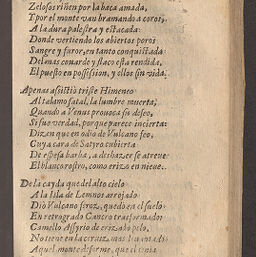 Zelosos riñen por la baca amada,
Y por el monte van bramando a coros,
A la dura palestra y estacada
Donde vertiendo los abiertos poros
Sangre y furor, en tanto conquistada
Del mas couarde y flaco esta rendida,
El puesto en possession, y ellos sin vida.
Apenas assistio triste Himeneo
Al talamo fatal, la lumbre muerta,
Quando a Venus prouoca su desseo,
Si fue verdad, porque parece incierta:
Dizen que en odio de Vulcano feo,
Cuya cara de Satyro cubierta
De espesa barba, a deshazer se atreue
El blanco rostro, como erizo en nieue.
De la cayda que del alto cielo
A la Isla de Lemnos arrojado
Dio Vulcano feroz, quedo en el suelo
En retrogrado Cancro trasformado:
Camello Assyrio de erizado pelo,
No tiene en la
Aquel monte disforme, que el